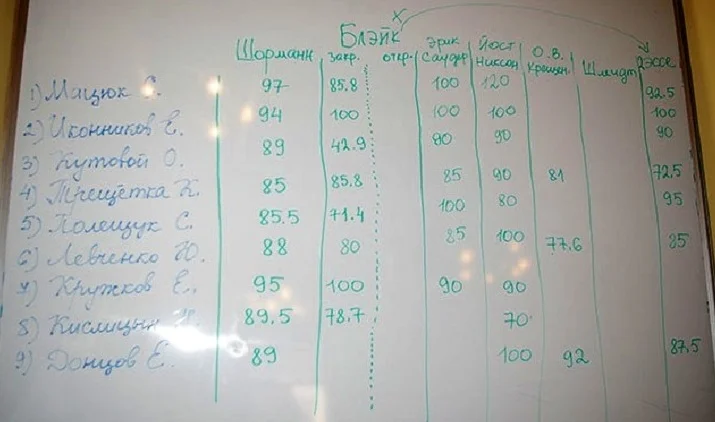 Х
Блэйк
Шорманн закр. откр. Эрик Саудер Йост Никсон О.В. Шмидт Эссе
1) Мацюк С. 97 85.8 100 120 92.5
2) Иконников Е. 94 100 100 100 100
3) Кутовой О. 89 42.9 90 90 90
4) Трещётка К. 85 85.8 85 90 81 72.5
5) Полещук С. 85.5 71.4 100 80 95
6) Левченко Ю. 88 80 85 100 77.6 85
7) Кружков Е. 95 100 90 90
8) Кислицын 89.5 78.7 70
9) Донцов Е. 89 100 92 87.5